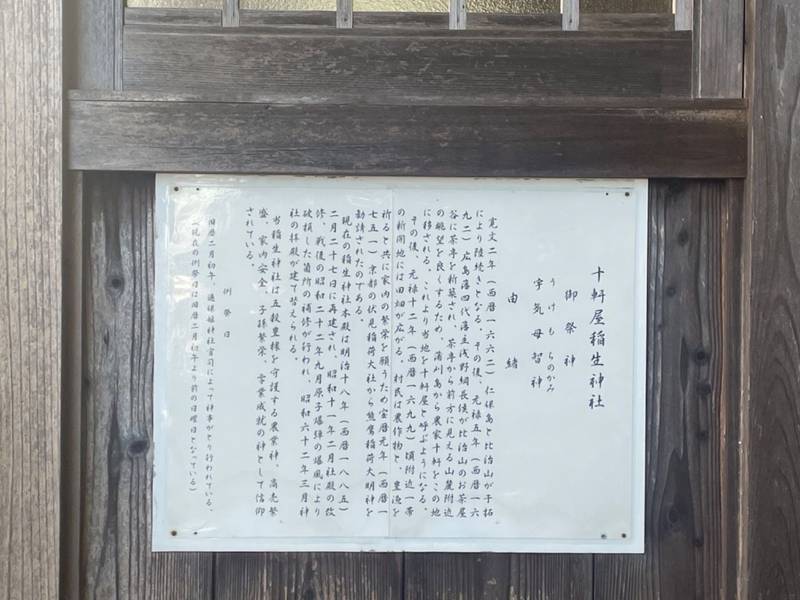 十軒屋稲生神社
御祭神
うけもちのかみ
宇気母智神
由緒
寛文二年(西暦一六六二)仁保島と比治山が干拓
により陸続きとなる。その後、元禄五年(西暦一六
九二)広島藩四代藩主浅野綱長侯が比治山のお茶屋
谷に茶亭を新築され、茶亭から前方に見える山麓附近
の眺望を良くするため、蒲刈島から農家十軒をこの地
に移される。これより当地を十軒屋と呼ぶようになる。
その後、元禄十二年(西暦一六九九)頃附近一帯
の新開地には田畑が広がる。村民は農作物と、豊漁を
祈ると共に家内の繁栄を願うため宝暦元年(西暦一
七五一)京都の伏見稲荷大社から熊鷹稲荷大明神を
勧請されたのである。
現在の稲生神社本殿は明治十八年(西暦一八八五)
二月二十七日に再建され、昭和十一年二月社殿の改
修、戦後の昭和二十二年九月原子爆弾の爆風により
破損した箇所の補修が行われ、昭和六十二年三月神
社の拝殿が建て替えられる。
当稲生神社は五穀豊穣を守護する農業神、商売繁
盛、家内安全、子孫繁栄、学業成就の神として信仰
されている。
例祭日
旧暦二月初午、邇保姫神社宮司によって神事がとり行われている。
(現在の例祭日は旧暦二月初午より前の日曜日となっている)